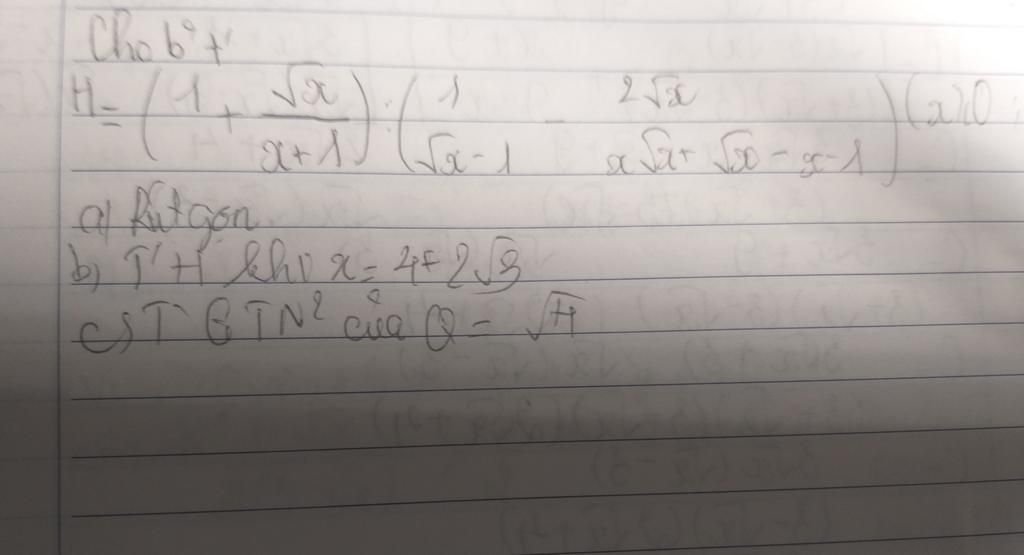 Cho b° t'
H = (1 + √x / x+1) : (1 / √x-1 - 2√x / x√x + √x - x - 1) (x≥0;
a) Rút gọn
b) T' H khi x = 4+2√3
c) T` GTN² của Q = √H